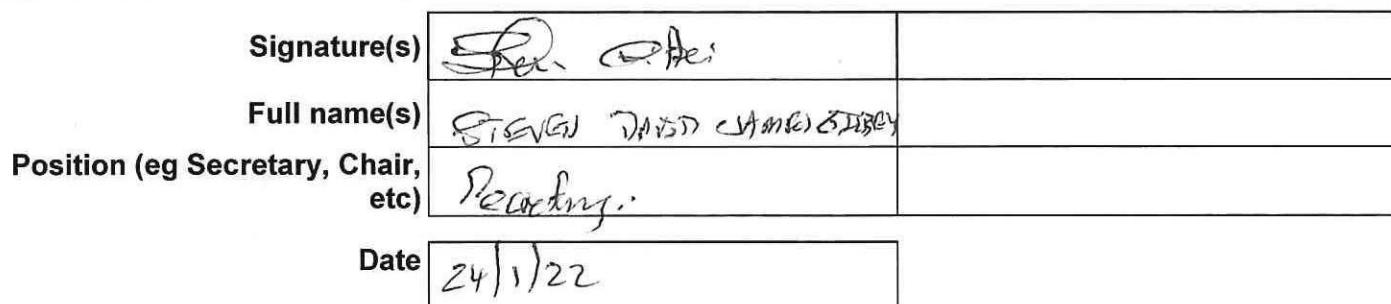 Signature(s)
Full name(s) STEVEN DAVID JAMES
Position (eg Secretary, Chair,
etc)
Date 24/1/22